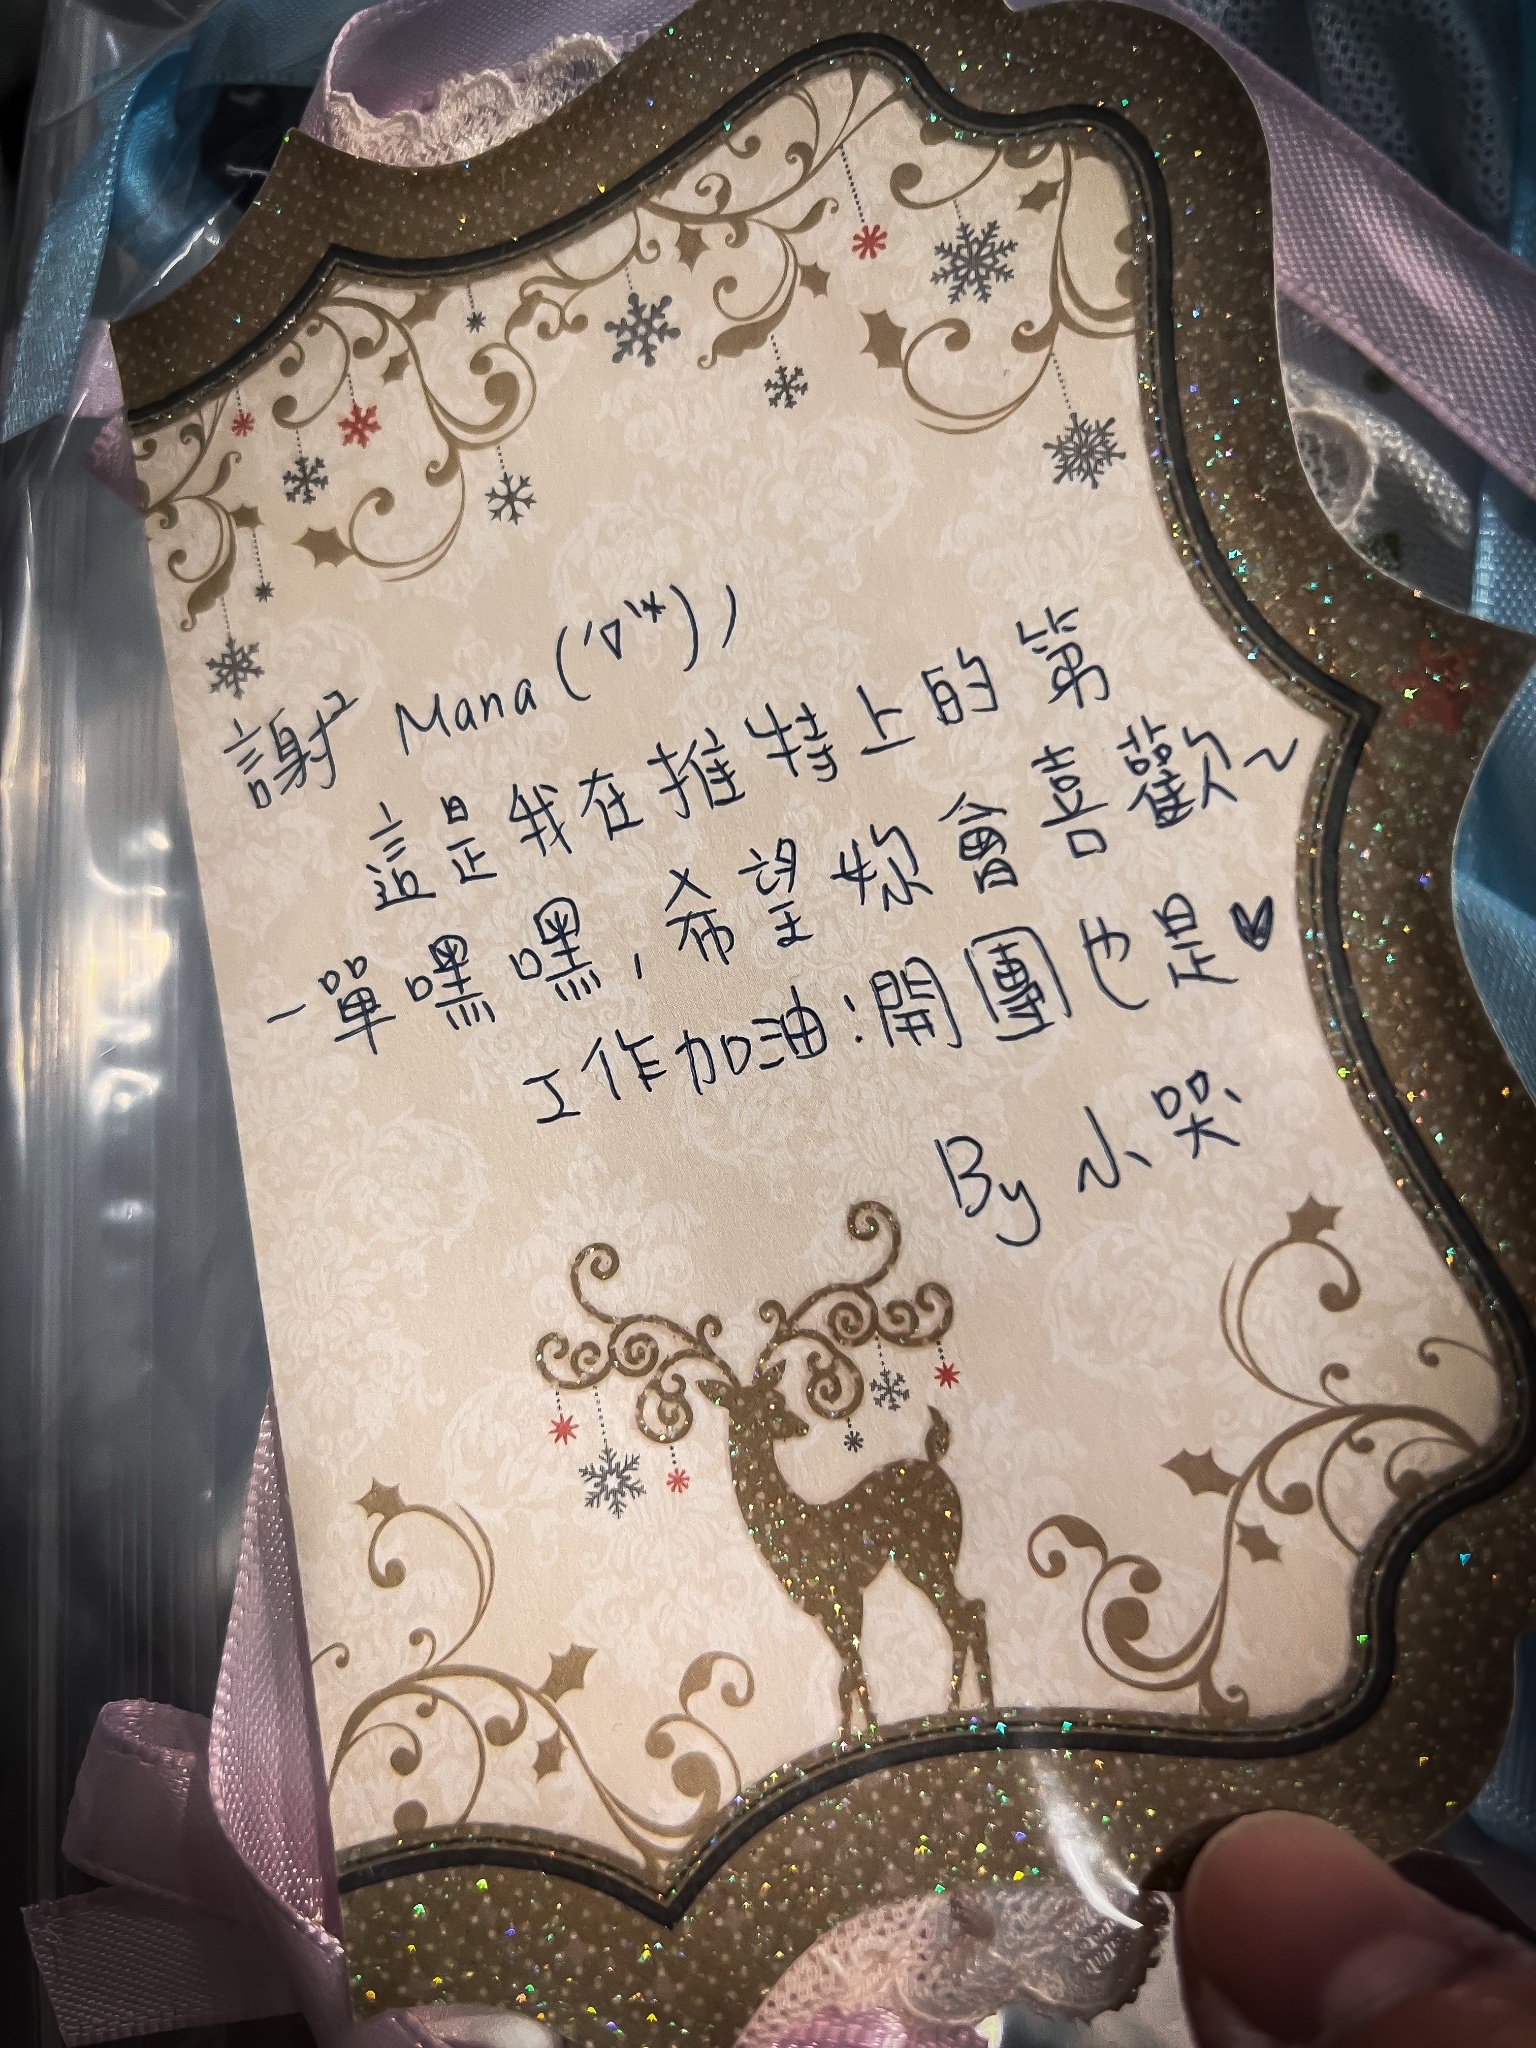 謝² Mana (´▽`*))
這是我在推特上的第
一單嘿嘿,希望妳會喜歡~
工作加油:開團也是♥
By 小哭